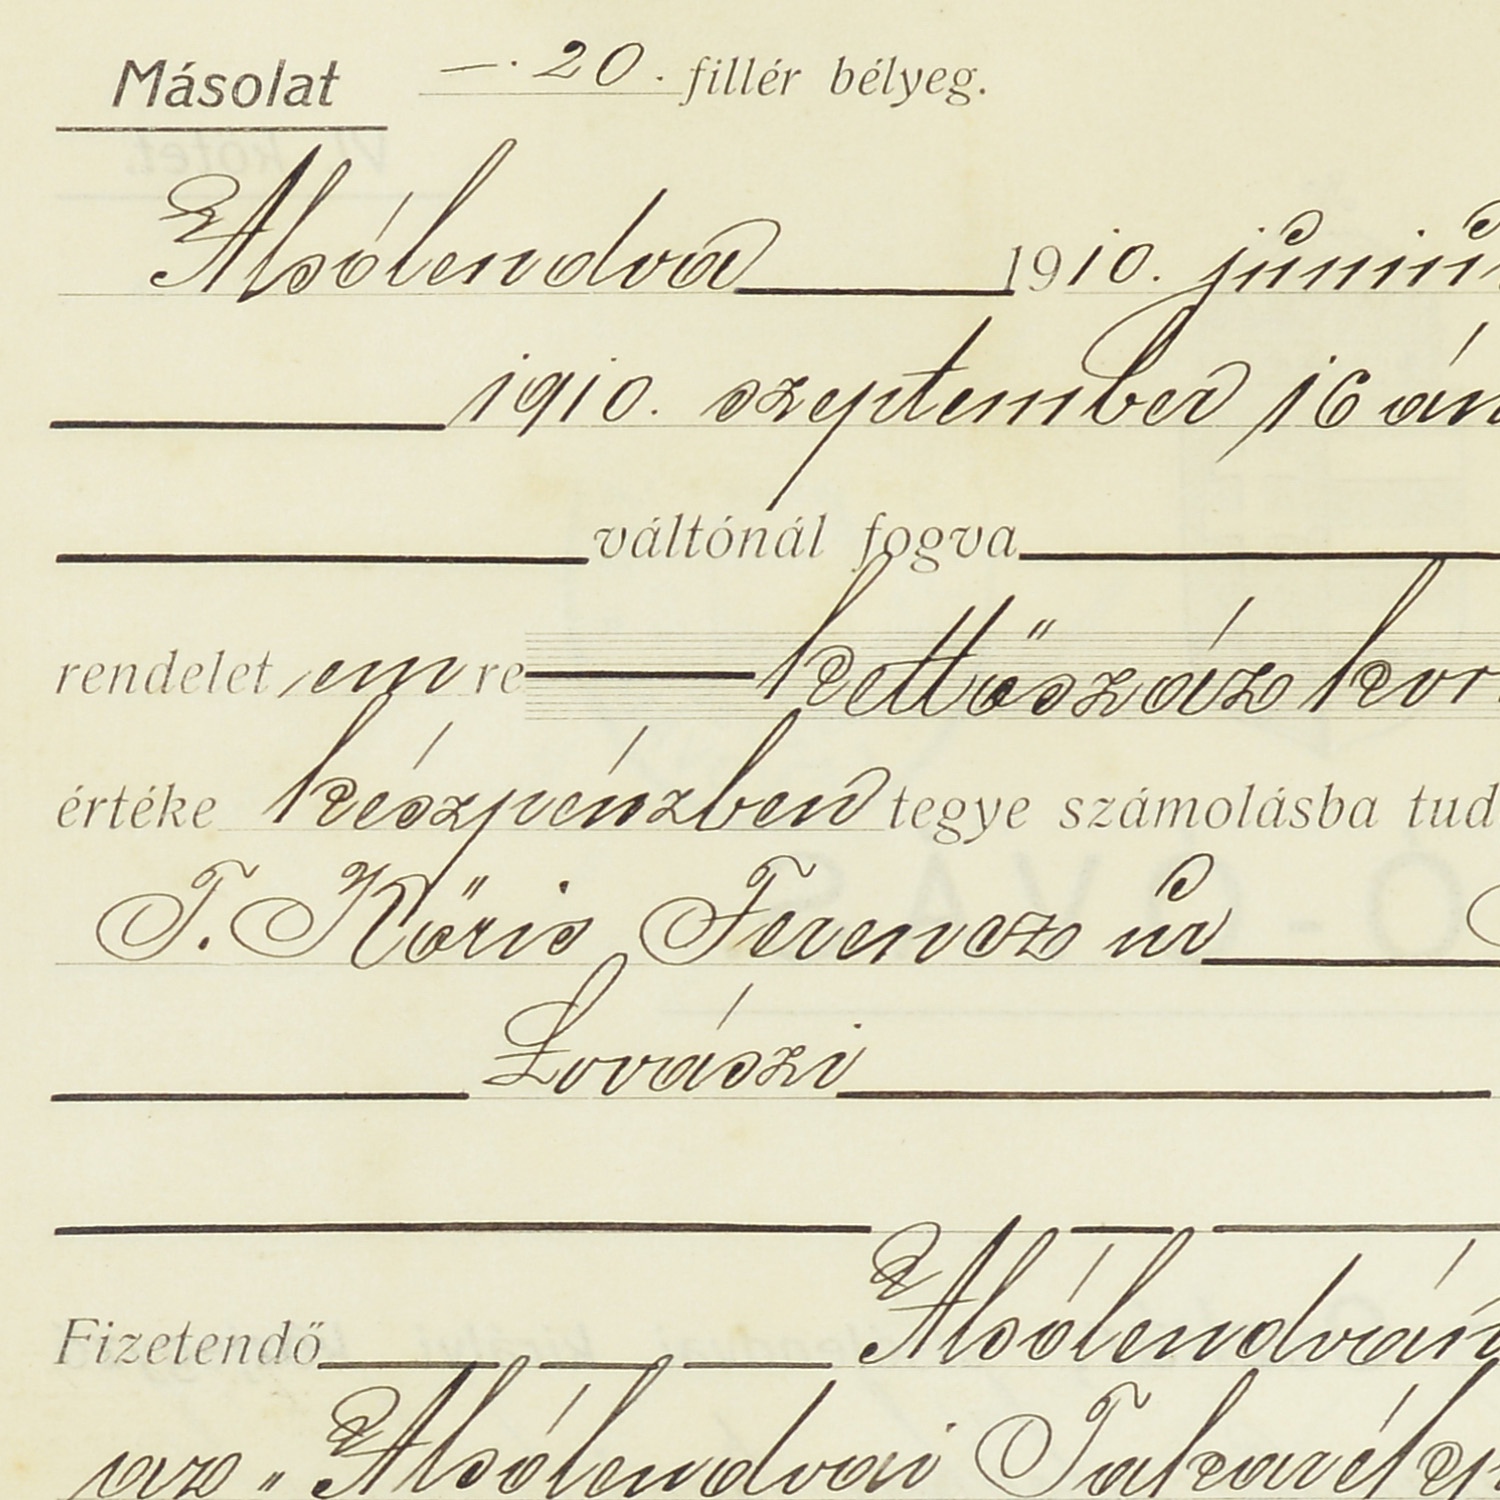 Másolat —. 20. fillér bélyeg.
Alsólendva 1910. júniu
1910. szeptember 16 án
váltónál fogva
rendelet em re kettőszáz kor
értéke készpénzben tegye számolásba tud
T. Kőris Ferencz úr
Lovászi
Fizetendő Alsólendván
az „Alsólendvai Takarékp